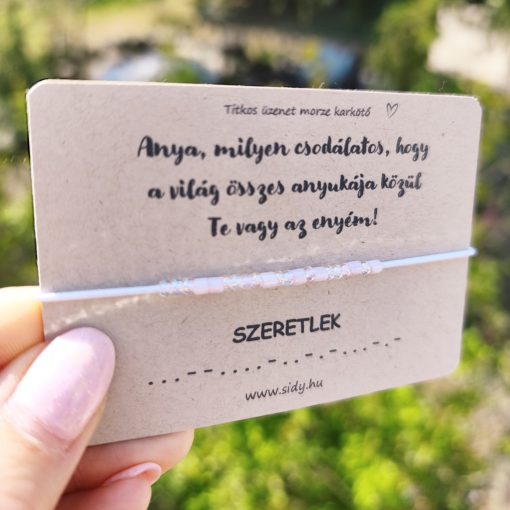 Titkos üzenet morze karkötő ♡
Anya, milyen csodálatos, hogy
a világ összes anyukája közül
Te vagy az enyém!
SZERETLEK
...--...-..-.-...-.-
www.sidy.hu